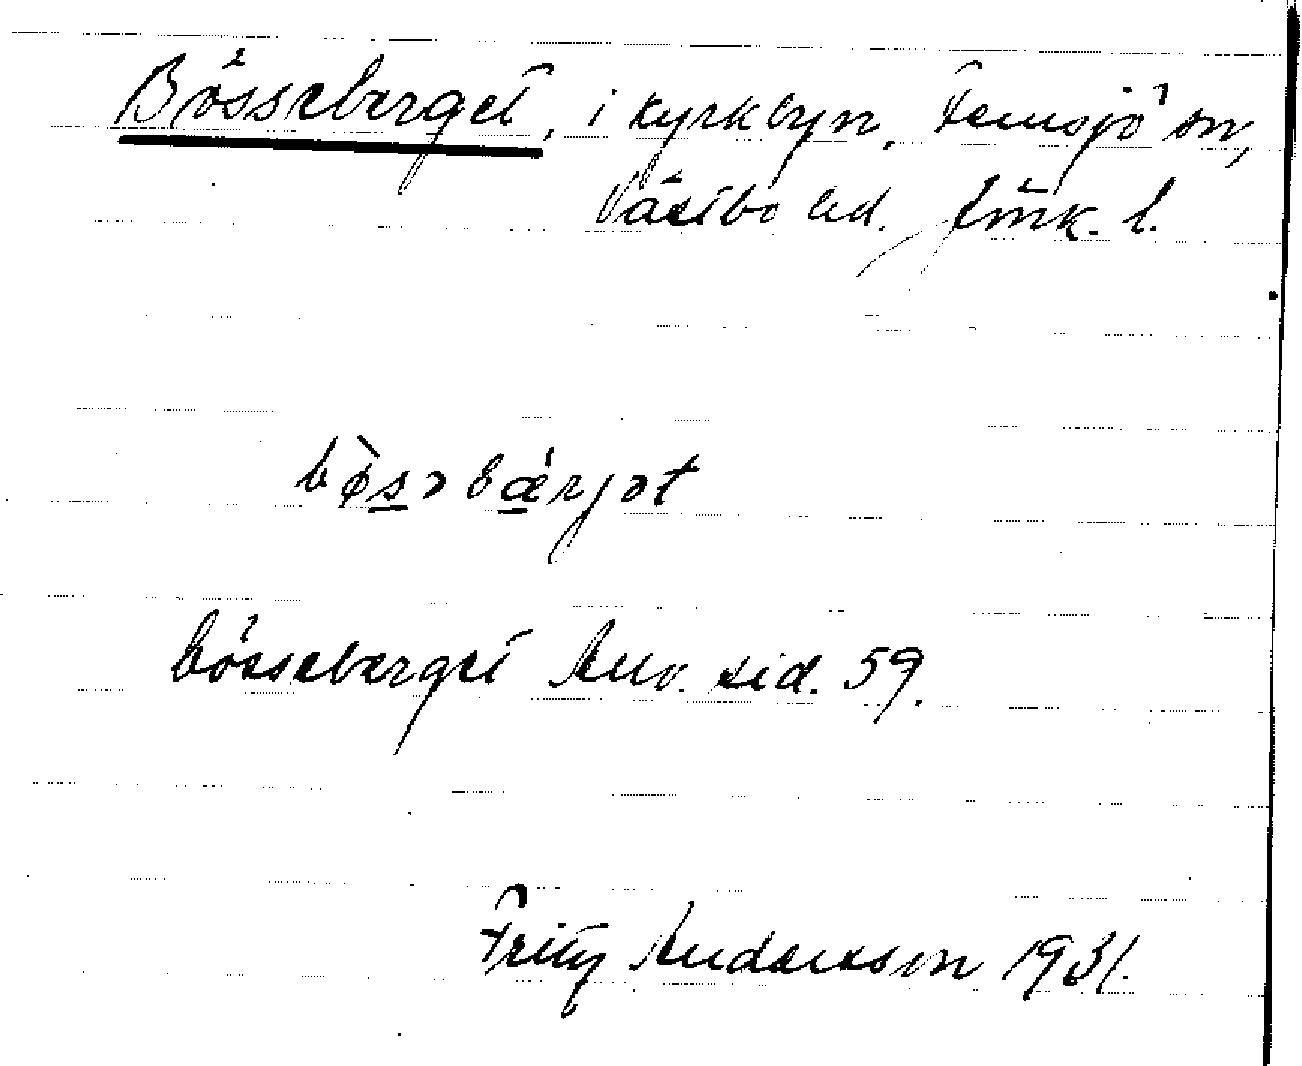 Bösseberget, i kyrkbyn, Femsjö sn,
Västbo hd. Jönk. l.
bø̀səbærjət
bösseberget Anv. sid. 59.
Fritz Andersson 1931.